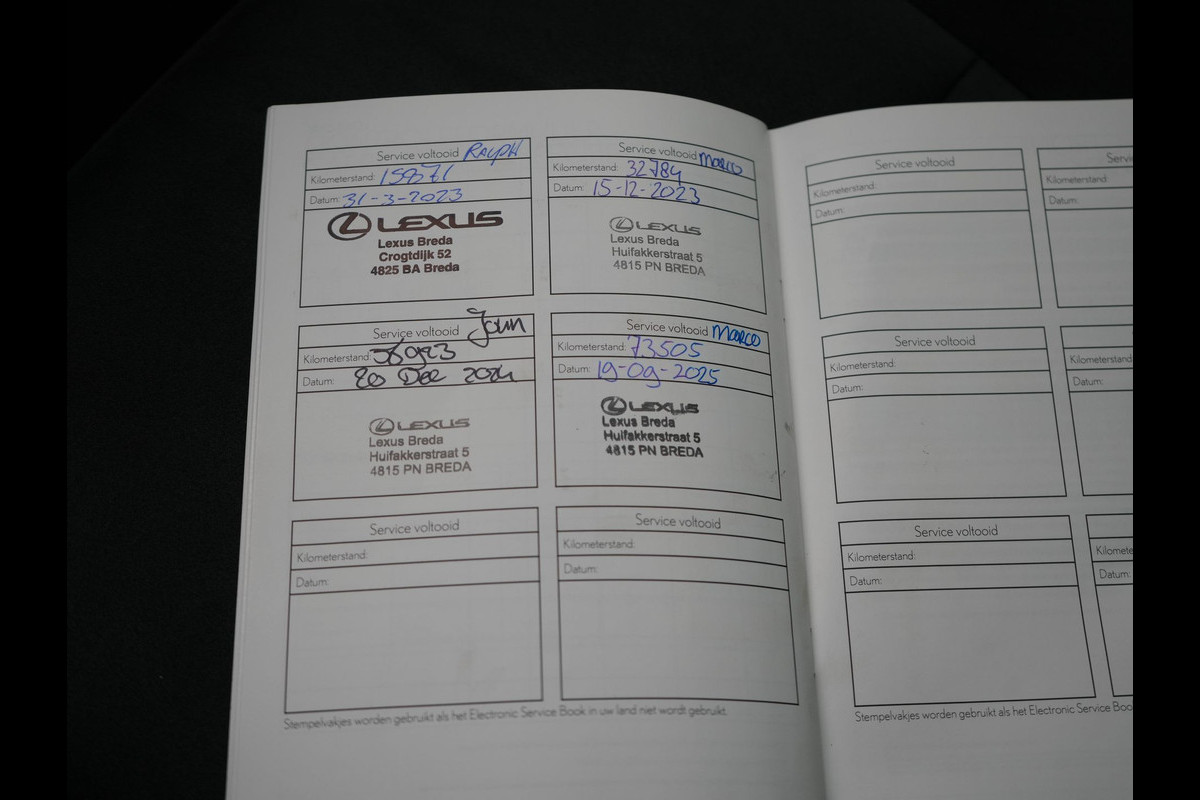 Service voltooid RALPH
Kilometerstand: 15871
Datum: 31-3-2023
LEXUS
Lexus Breda
Crogtdijk 52
4825 BA Breda
Service voltooid Marco
Kilometerstand: 32784
Datum: 15-12-2023
LEXUS
Lexus Breda
Huifakkerstraat 5
4815 PN BREDA
Service voltooid John
Kilometerstand:
Datum: 20 Dec 2024
LEXUS
Lexus Breda
Huifakkerstraat 5
4815 PN BREDA
Service voltooid Marco
Kilometerstand: 73505
Datum: 19-09-2025
LEXUS
Lexus Breda
Huifakkerstraat 5
4815 PN BREDA
Service voltooid
Kilometerstand:
Datum:
Service voltooid
Kilometerstand:
Datum:
Stempelvakjes worden gebruikt als het Electronic Service Book in uw land niet wordt gebruikt.
Service voltooid
Kilometerstand:
Datum:
Servi
Kilometerstand:
Datum:
Service voltooid
Kilometerstand:
Datum:
Kilometerstand:
Datum:
Service voltooid
Kilometerstand:
Datum:
Kilomete
Datum:
Stempelvakjes worden gebruikt als het Electronic Service Boo